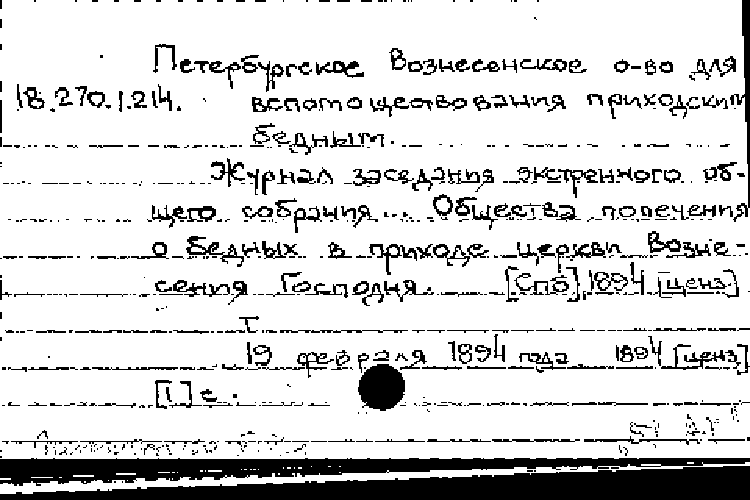 Петербургское Вознесенское о-во для
18.270.1.214. вспомоществования приходским
бедным.
Журнал заседания экстренного об-
щего собрания... Общества попечения
о бедных в приходе церкви Возне-
сения Господня. [Спб], 1894 [ценз]
I
19 февраля 1894 года 1894 [ценз]
[1] с.